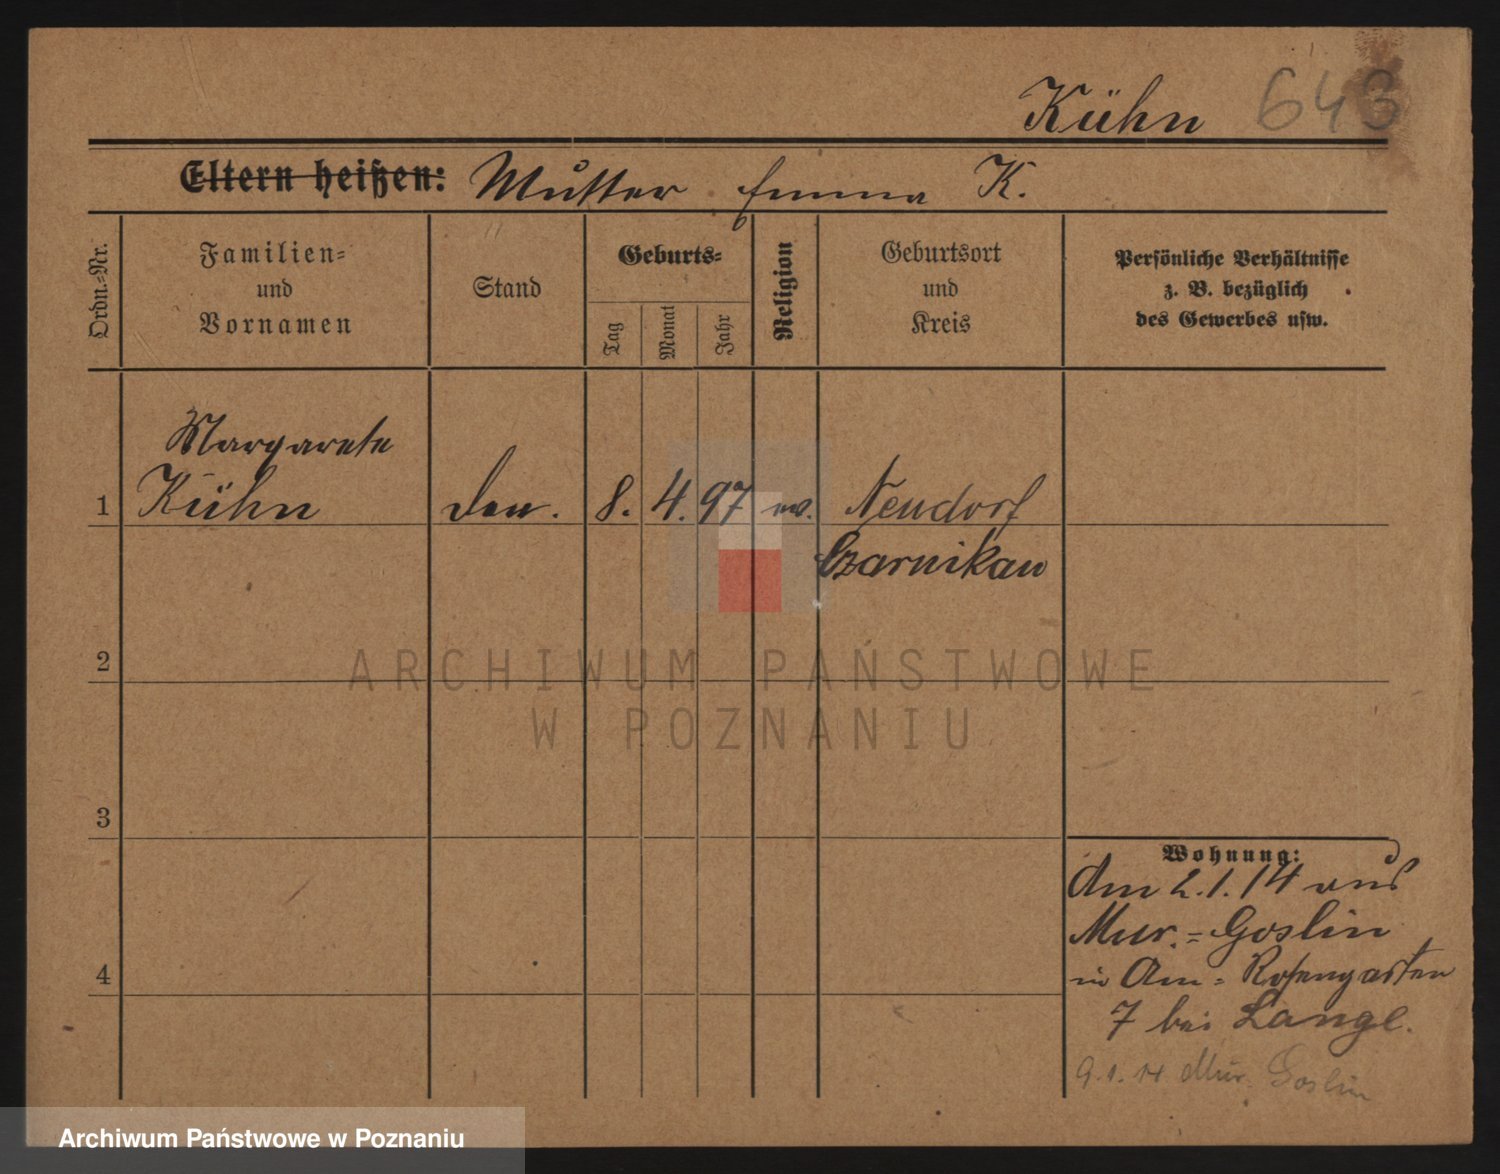 Kühn 643
Eltern heißen: Mutter Emma K.
Ordn.-Nr.
Familien-
und
Vornamen
Stand
Geburts-
Tag
Monat
Jahr
Religion
Geburtsort
und
Kreis
Persönliche Verhältnisse
z. B. bezüglich
des Gewerbes usw.
Margarete
1 Kühn 8. 4. 97 Neudorf
Czarnikau
2
ARCHIWUM PAŃSTWOWE
W POZNANIU
3
Wohnung:
Am 2.1.14 aus
Mur.=Goslin
in Am= Rosengarten
7 bei Lange.
9.1.14 Mur. Goslin
4
Archiwum Państwowe w Poznaniu